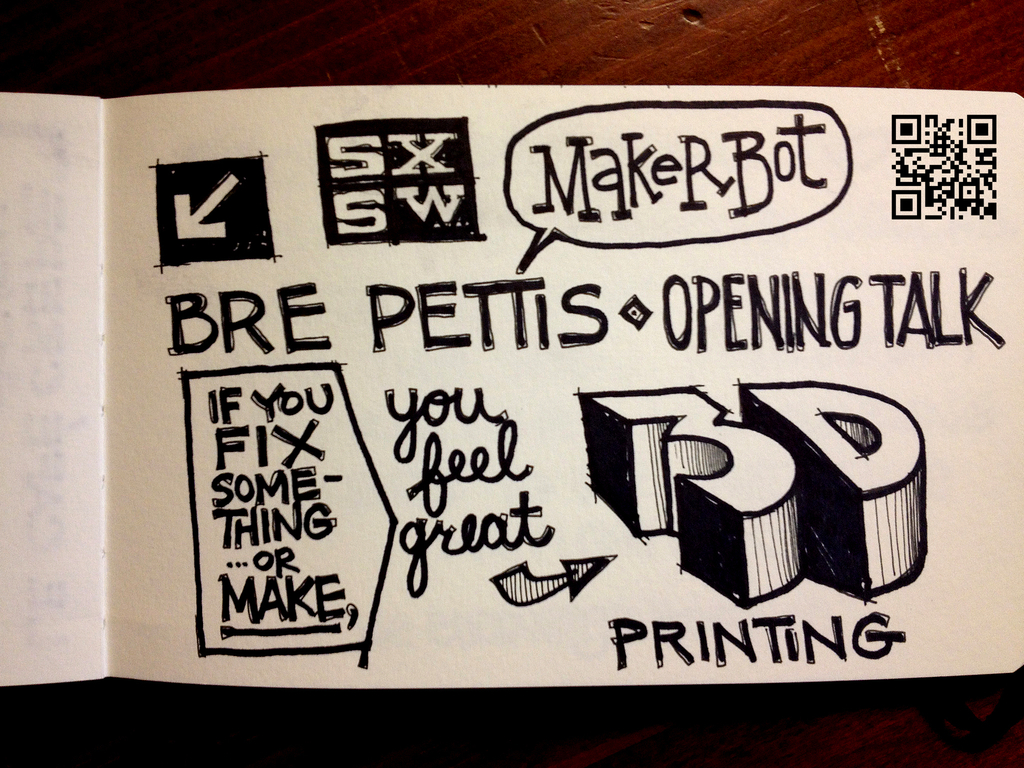 SX
SW
MakerBot
BRE PETTIS OPENING TALK
IF YOU
FIX
SOME-
THING
...OR
MAKE,
you
feel
great
3D
PRINTING